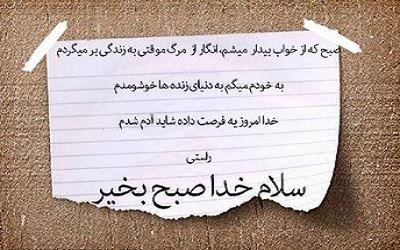 صبح که از خواب بیدار میشم، انگار از مرگ موقتی به زندگی بر میگردم
به خودم میگم به دنیای زنده ها خوشومدم
خدا امروز یه فرصت داده شاید آدم شدم
راستی
سلام خدا صبح بخیر